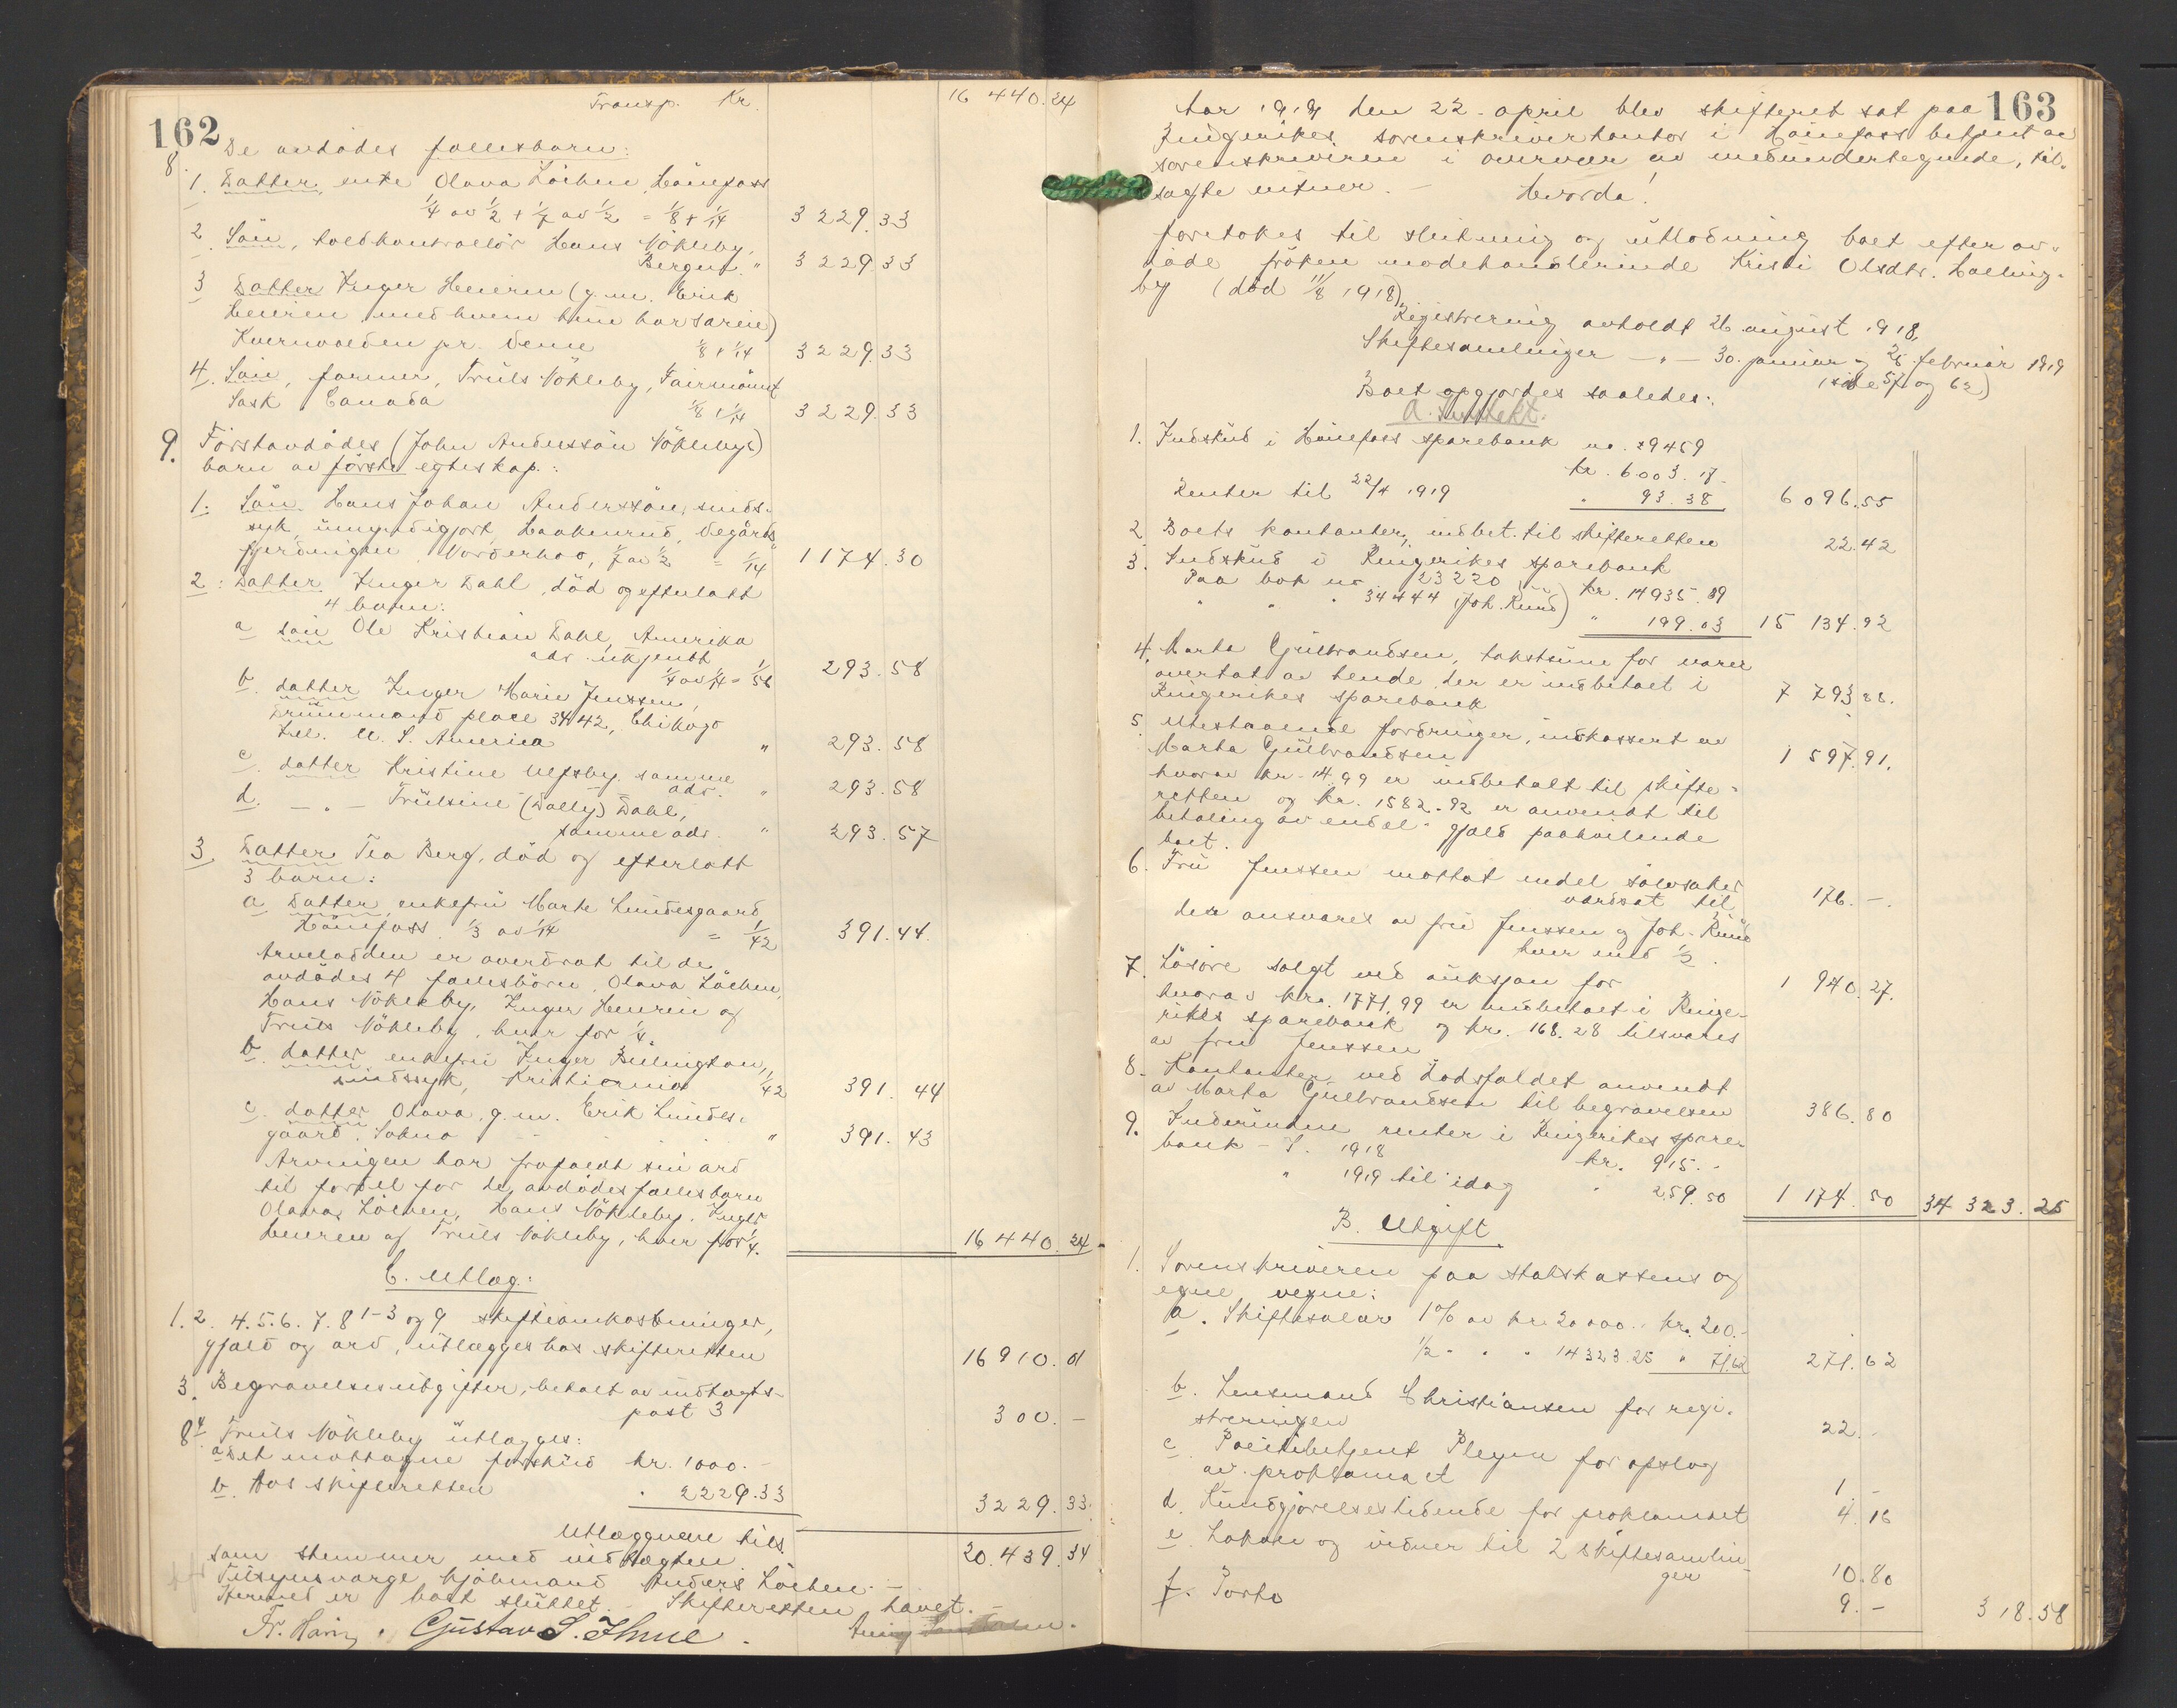 162
Transp. Kr. 16 440.24
8. De avdødes fællesbarn:
1. Datter, enke Olava Löchen, Hönefoss
1/4 av 1/2 + 1/7 av 1/2 = 1/8 + 1/14 3229.33
2. Sön, toldkontrollör Hans Nökleby,
Bergen. " 3229.33
3 Datter Inger Heieren (g. m. Erik
Heieren med hvem hun har særeie)
Kvernvolden pr. Veme 1/8 + 1/14 3229.33
4. Sön, farmer, Truls Nökleby, Fairmount
Sask. Canada 1/8 + 1/14 3229.33
9. Förstavdödes (John Anderssön Nöklebys)
barn av förste egteskap:
1. Sön Hans Johan Anderssön, sinds-
syk, umyndigjort, Haakenrud, Vegårds
fjerdingen Norderhov, 1/7 av 1/2 = 1/14 1174.30
2. Datter Inger Dahl, död og efterlatt
4 barn:
a sön Ole Kristian Dahl, Amerika
adr. ukjendt 1/4 av 1/14 = 1/56 293.58
b. datter Inger Marie Jenssen,
Drummond place 3442, Chikago
Ill. U. S. America " 293.58
c. datter Kristine Ulfsby samme
adr. " 293.58
d. — " — Trulsine (Dolly) Dahl,
samme adr. " 293.57
3 Datter Tea Berg, död og efterlatt
3 barn:
a Datter enkefru Marte Lundesgaard
Hönefoss 1/3 av 1/14 = 1/42 391.44.
Arvelodden er overdrat til de
avdödes 4 fællesbörn, Olava Löchen,
Hans Nökleby, Inger Heieren og
Truls Nökleby, hver for 1/4.
b. datter enkefru Inger Bülington,
sindssyk, Kristiania 1/42 391.44
c. datter Olava g. m. Erik Lundes-
gaard, Sokna " 391.43
Arvingen har frafaldt sin arv
til fordel for de avdödes fællesbarn
Olava Löchen, Hans Nökleby, Inger
Heieren og Truls Nökleby, hver for 1/4.
16 440.24
C. Utlæg:
1. 2. 4. 5. 6. 7. 8 1-3 og 9 skifteomkostninger,
gjæld og arv, utlægges hos skifteretten 16910.01
3. Begravelsesutgifter, betalt av indtægts-
post 3 300.—
8 4 Truls Nökleby utlægges:
a Det mottagne forskud kr. 1000.—
b. Hos skifteretten " 2229.33 3229.33.
Utlæggene tils. 20.439.34
som stemmer med indtægten.
Tilsynsverge kjöbmand Anders Löchen.—
Hermed er boet sluttet. Skifteretten hævet.—
Fr. Haring. Gustav S. Ihme.
163
Aar 1919 den 22. april blev skifteret sat paa
Ringerikes sorenskriverkontor i Hönefoss betjent av
sorenskriveren i overvær av medundertegnede, til-
sagte vitner.— Hvorda!
foretokes til slutning og utlodning boet efter av-
døde fröken modehandlerinde Kristi Olsdtr. Halling-
by (död 11/8 1918).
Registrering avholdt 26 august 1918,
Skiftesamlinger — " — 30. januar og 28 februar 1919
(side 57 og 62)
Boet opgjordes saaledes:
A. Indtekt.
1. Indskud i Hönefoss sparebank no. 29459
kr. 6003.17.
Renter til 22/4 1919 " 93.38 6096.55
2. Boets kontanter, indbet. til skifteretten 22.42
3. Indskud i Ringerikes sparebank
Paa bok no. 23220 kr. 14935.89
" " " 34444 (Joh. Ruud) " 199.03 15 134.92
4. Marta Gulbrandsen, takstsum for varer
overtat av hende, der er indbetalt i
Ringerikes sparebank 7 793.88.
5. Utestaaende fordringer, indkassert av
Marta Gulbrandsen 1 597.91.
hvorav kr. 14.99 er indbetalt til skifte-
retten og kr. 1582.92 er anvendt til
betaling av endel gjæld paahvilende
boet.
6. Fru Jenssen mottat endel sølvsaker
værdsat til 176.—.
der ansvares av fru Jenssen og Joh. Ruud
hver med 1/2.
7. Lösöre solgt ved auksjon for 1 940.27.
hvorav kr. 1771.99 er indbetalt i Ringe-
rikes sparebank og kr. 168.28 tilsvares
av fru Jenssen
8. Kontanter ved dødsfaldet anvendt
av Marta Gulbrandsen til begravelsen 386.80
9. Indvundne renter i Ringerikes spare-
bank — I. 1918 kr. 915.-
" 1919 til idag " 259.50 1 174.50 34 323.25
B. Utgift.
1. Sorenskriveren paa statskassens og
egne vegne:
a. Skiftesalær 1% av kr. 20000.- kr. 200.-
1/2 " " " 14323.25 " 71.62 271.62
b. Lensmand Christiansen for regi-
streringen 22.-
c. Politibetjent Plegen for opslag
av proklamaet 1.-
d. Kundgjörelsestidende for proklamaet 4.16
e. Lokale og vidner til 2 skiftesamlin-
ger 10.80
f. Porto 9.- 318.58